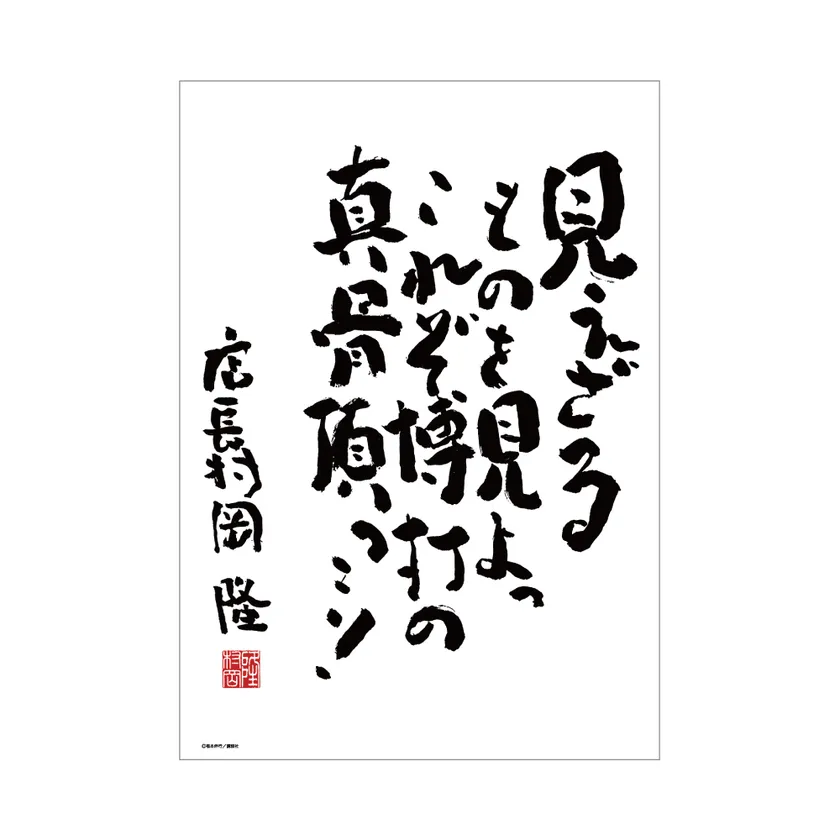 見えざる
ものを見よっ
これぞ博打の
真骨頂っミソ!
店長村岡 隆
村岡
隆
©福本伸行/講談社